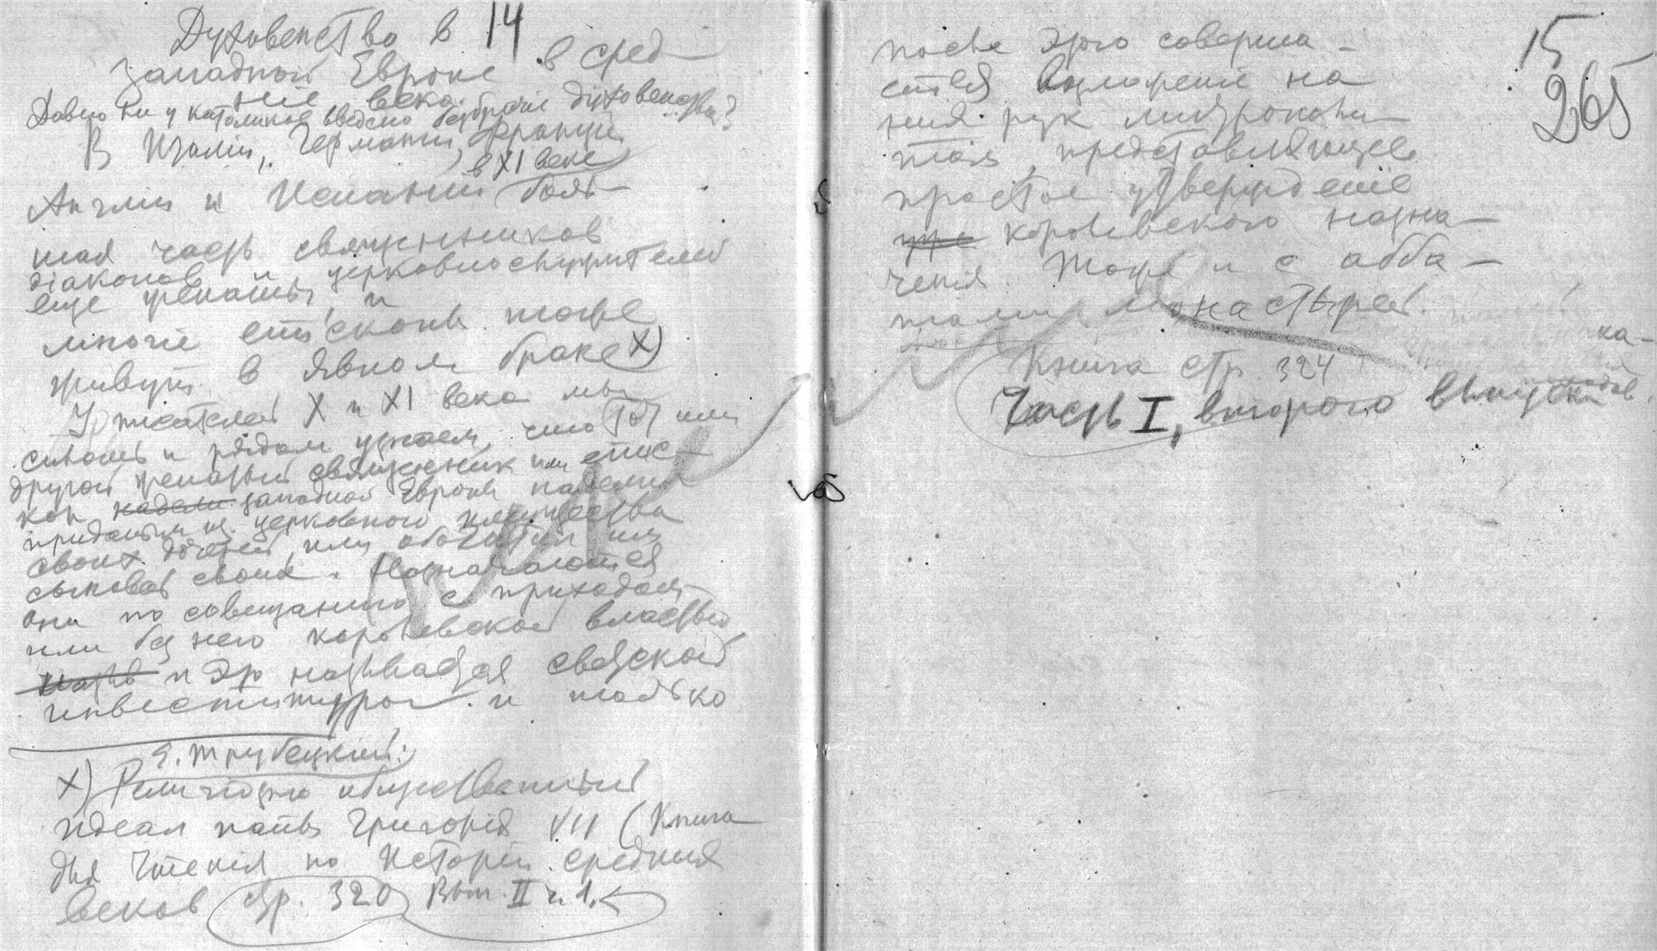 14
Духовенство в
западной Европе в сред
ніе века.
Давно ли у католиков введено безбрачіе духовенства?
В Италіи, Германіи, Франціи
в XI веке
Англіи и Испаніи боль-
шая часть священников
діаконов и церковнослужителей
еще женаты, и
многіе епископы тоже
живут в явном браке X)
У писателей X и XI века мы
сплошь и рядом узнаем, что тот или
другой женатый священник или епис-
коп западной Европы наделил
приданым из церковного имущества
своих дочерей, или обогатил им
сыновей своих. Назначаются
они по совещанию с приходом
или без него королевской властью
и это называется светской
инвеститурой и только
Е. Трубецкий.
X) Религіозно общественный
идеал папы Григорія VII (Книга
для чтенія по Исторіи средних
веков стр. 320 Вып. II ч. 1.
15
265
после этого соверша-
ется возложеніе на
них рук митрополи-
том, представляющее
простое утвержденіе
королевского назна-
ченія. Тоже и с абба-
тами монастырей.
Книга стр. 324
Часть I, второго выпуска